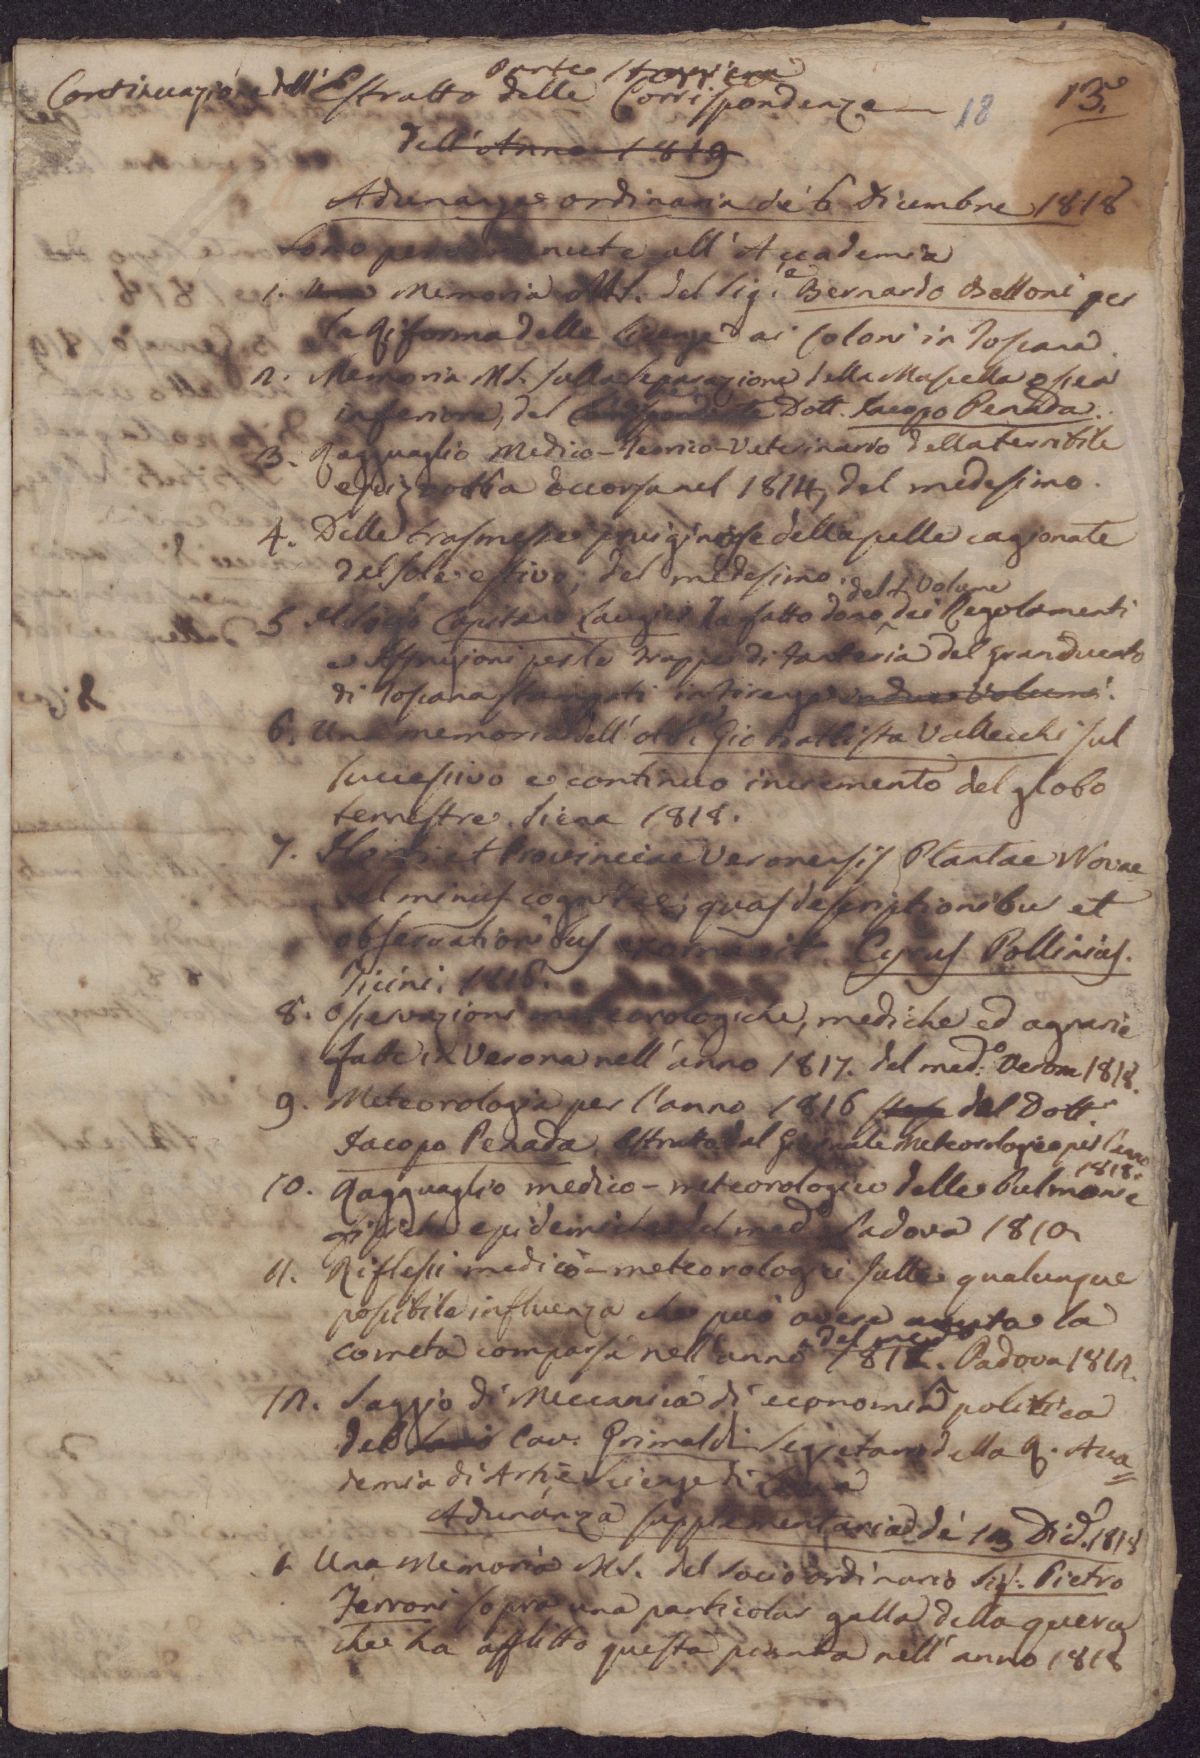 Parte Straniera
Continuazione dell'Estratto delle Corrispondenze 18 13.
dell'Anno 1819
Adunanza ordinaria de' 6 Dicembre 1818
Sono pervenute all'Accademia
1. Una Memoria MS. del Sig.e Bernardo Belloni per
la Riforma delle licenze ai Coloni in Toscana.
2. Memoria MS. sulla separazione della Mascella ossea
inferiore, del Dott. Jacopo Penada.
3. Ragguaglio Medico-Teorico-Veterinario della terribile
epizootia occorsa nel 1814, del medesimo.
4. Delle pruiginose della pelle cagionate
del sole estivo; del medesimo.
del I Volume
5. Il Socio Capitano Laugier ha fatto dono dei Regolamenti
e Istruzioni per le truppe di fanteria del Granducato
di Toscana stampati in Firenze in due Volumi.
6. Una memoria dell' Gio Batista Vallecchi sul
successivo e continuo incremento del globo
terrestre. Siena 1818.
7. Horti et Provinciae Veronensis Plantae Novae
vel minus cognitae; quas descriptionibus et
observationibus exornavit. Cyrus Pollinius.
Ticini. 1816.
8. Osservazioni meteorologiche, mediche ed agrarie
fatte in Verona nell'anno 1817. del med.o Verona 1818.
9. Meteorologia per l'anno 1816 del Dott.
Jacopo Penada. Estratto dal Giornale Meteorologico per l'anno
1818.
10. Ragguaglio medico-meteorologico delle Pulmonie
epidemiche del med.o Padova 1810
11. Riflessi medico-meteorologici sulla qualunque
possibile influenza che può avere avuta la
del med.o
cometa comparsa nell'anno 1811. Padova 1812.
12. Saggio di Meccanica di economia politica
del Socio Cav. Grimaldi Segretario della R. Acca=
demia di Arti e Scienze di
Adunanza supplementaria de' 13 Dic. 1818
1. Una Memoria MS. del Socio ordinario Sig. Pietro
Ferroni sopra una particolar galla della querce
che ha afflitto questa pianta nell'anno 1818